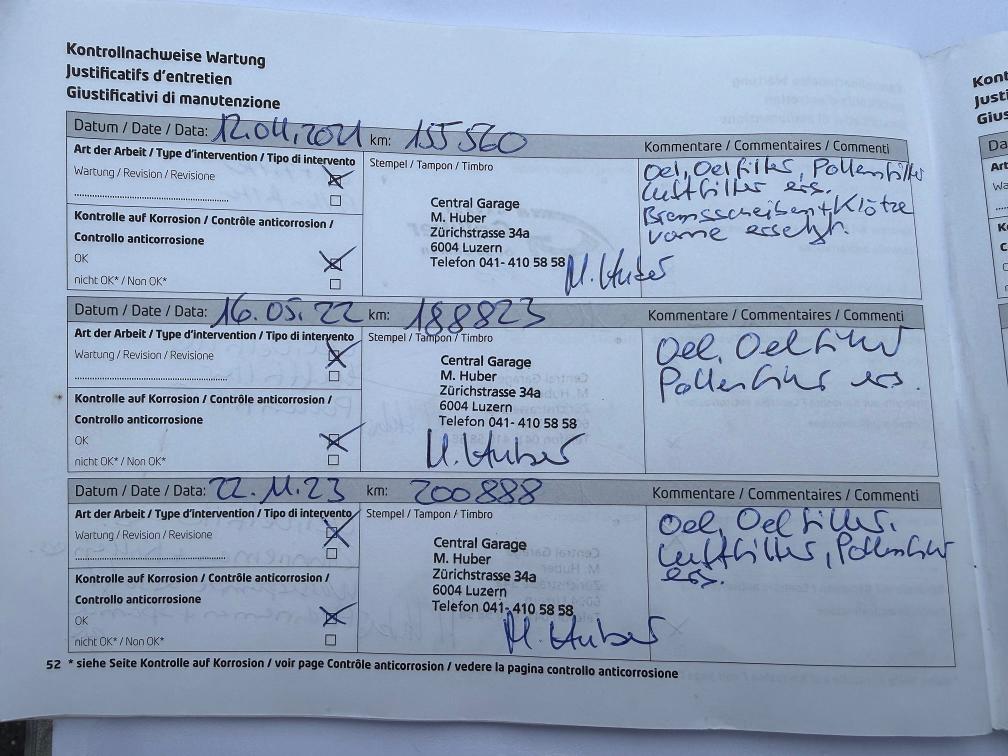 Kontrollnachweise Wartung
Justificatifs d'entretien
Giustificativi di manutenzione
Datum / Date / Data: 12.04.2021 km: 155560 Kommentare / Commentaires / Commenti
Art der Arbeit / Type d'intervention / Tipo di intervento
Wartung / Revision / Revisione
Kontrolle auf Korrosion / Contrôle anticorrosion /
Controllo anticorrosione
OK
nicht OK* / Non OK*
Stempel / Tampon / Timbro
Central Garage
M. Huber
Zürichstrasse 34a
6004 Luzern
Telefon 041- 410 58 58
M. Huber
Oel, Oelfilter, Pollenfilter
Luftfilter ers.
Bremsscheiben + Klötze
vorne ersetzt.
Datum / Date / Data: 16.05.22 km: 188823 Kommentare / Commentaires / Commenti
Art der Arbeit / Type d'intervention / Tipo di intervento
Wartung / Revision / Revisione
Kontrolle auf Korrosion / Contrôle anticorrosion /
Controllo anticorrosione
OK
nicht OK* / Non OK*
Stempel / Tampon / Timbro
Central Garage
M. Huber
Zürichstrasse 34a
6004 Luzern
Telefon 041- 410 58 58
M. Huber
Oel, Oelfilter
Pollenfilter ers.
Datum / Date / Data: 22.11.23 km: 200888 Kommentare / Commentaires / Commenti
Art der Arbeit / Type d'intervention / Tipo di intervento
Wartung / Revision / Revisione
Kontrolle auf Korrosion / Contrôle anticorrosion /
Controllo anticorrosione
OK
nicht OK* / Non OK*
Stempel / Tampon / Timbro
Central Garage
M. Huber
Zürichstrasse 34a
6004 Luzern
Telefon 041- 410 58 58
M. Huber
Oel, Oelfilter.
Luftfilter, Pollenfilter
ers.
52 * siehe Seite Kontrolle auf Korrosion / voir page Contrôle anticorrosion / vedere la pagina controllo anticorrosione